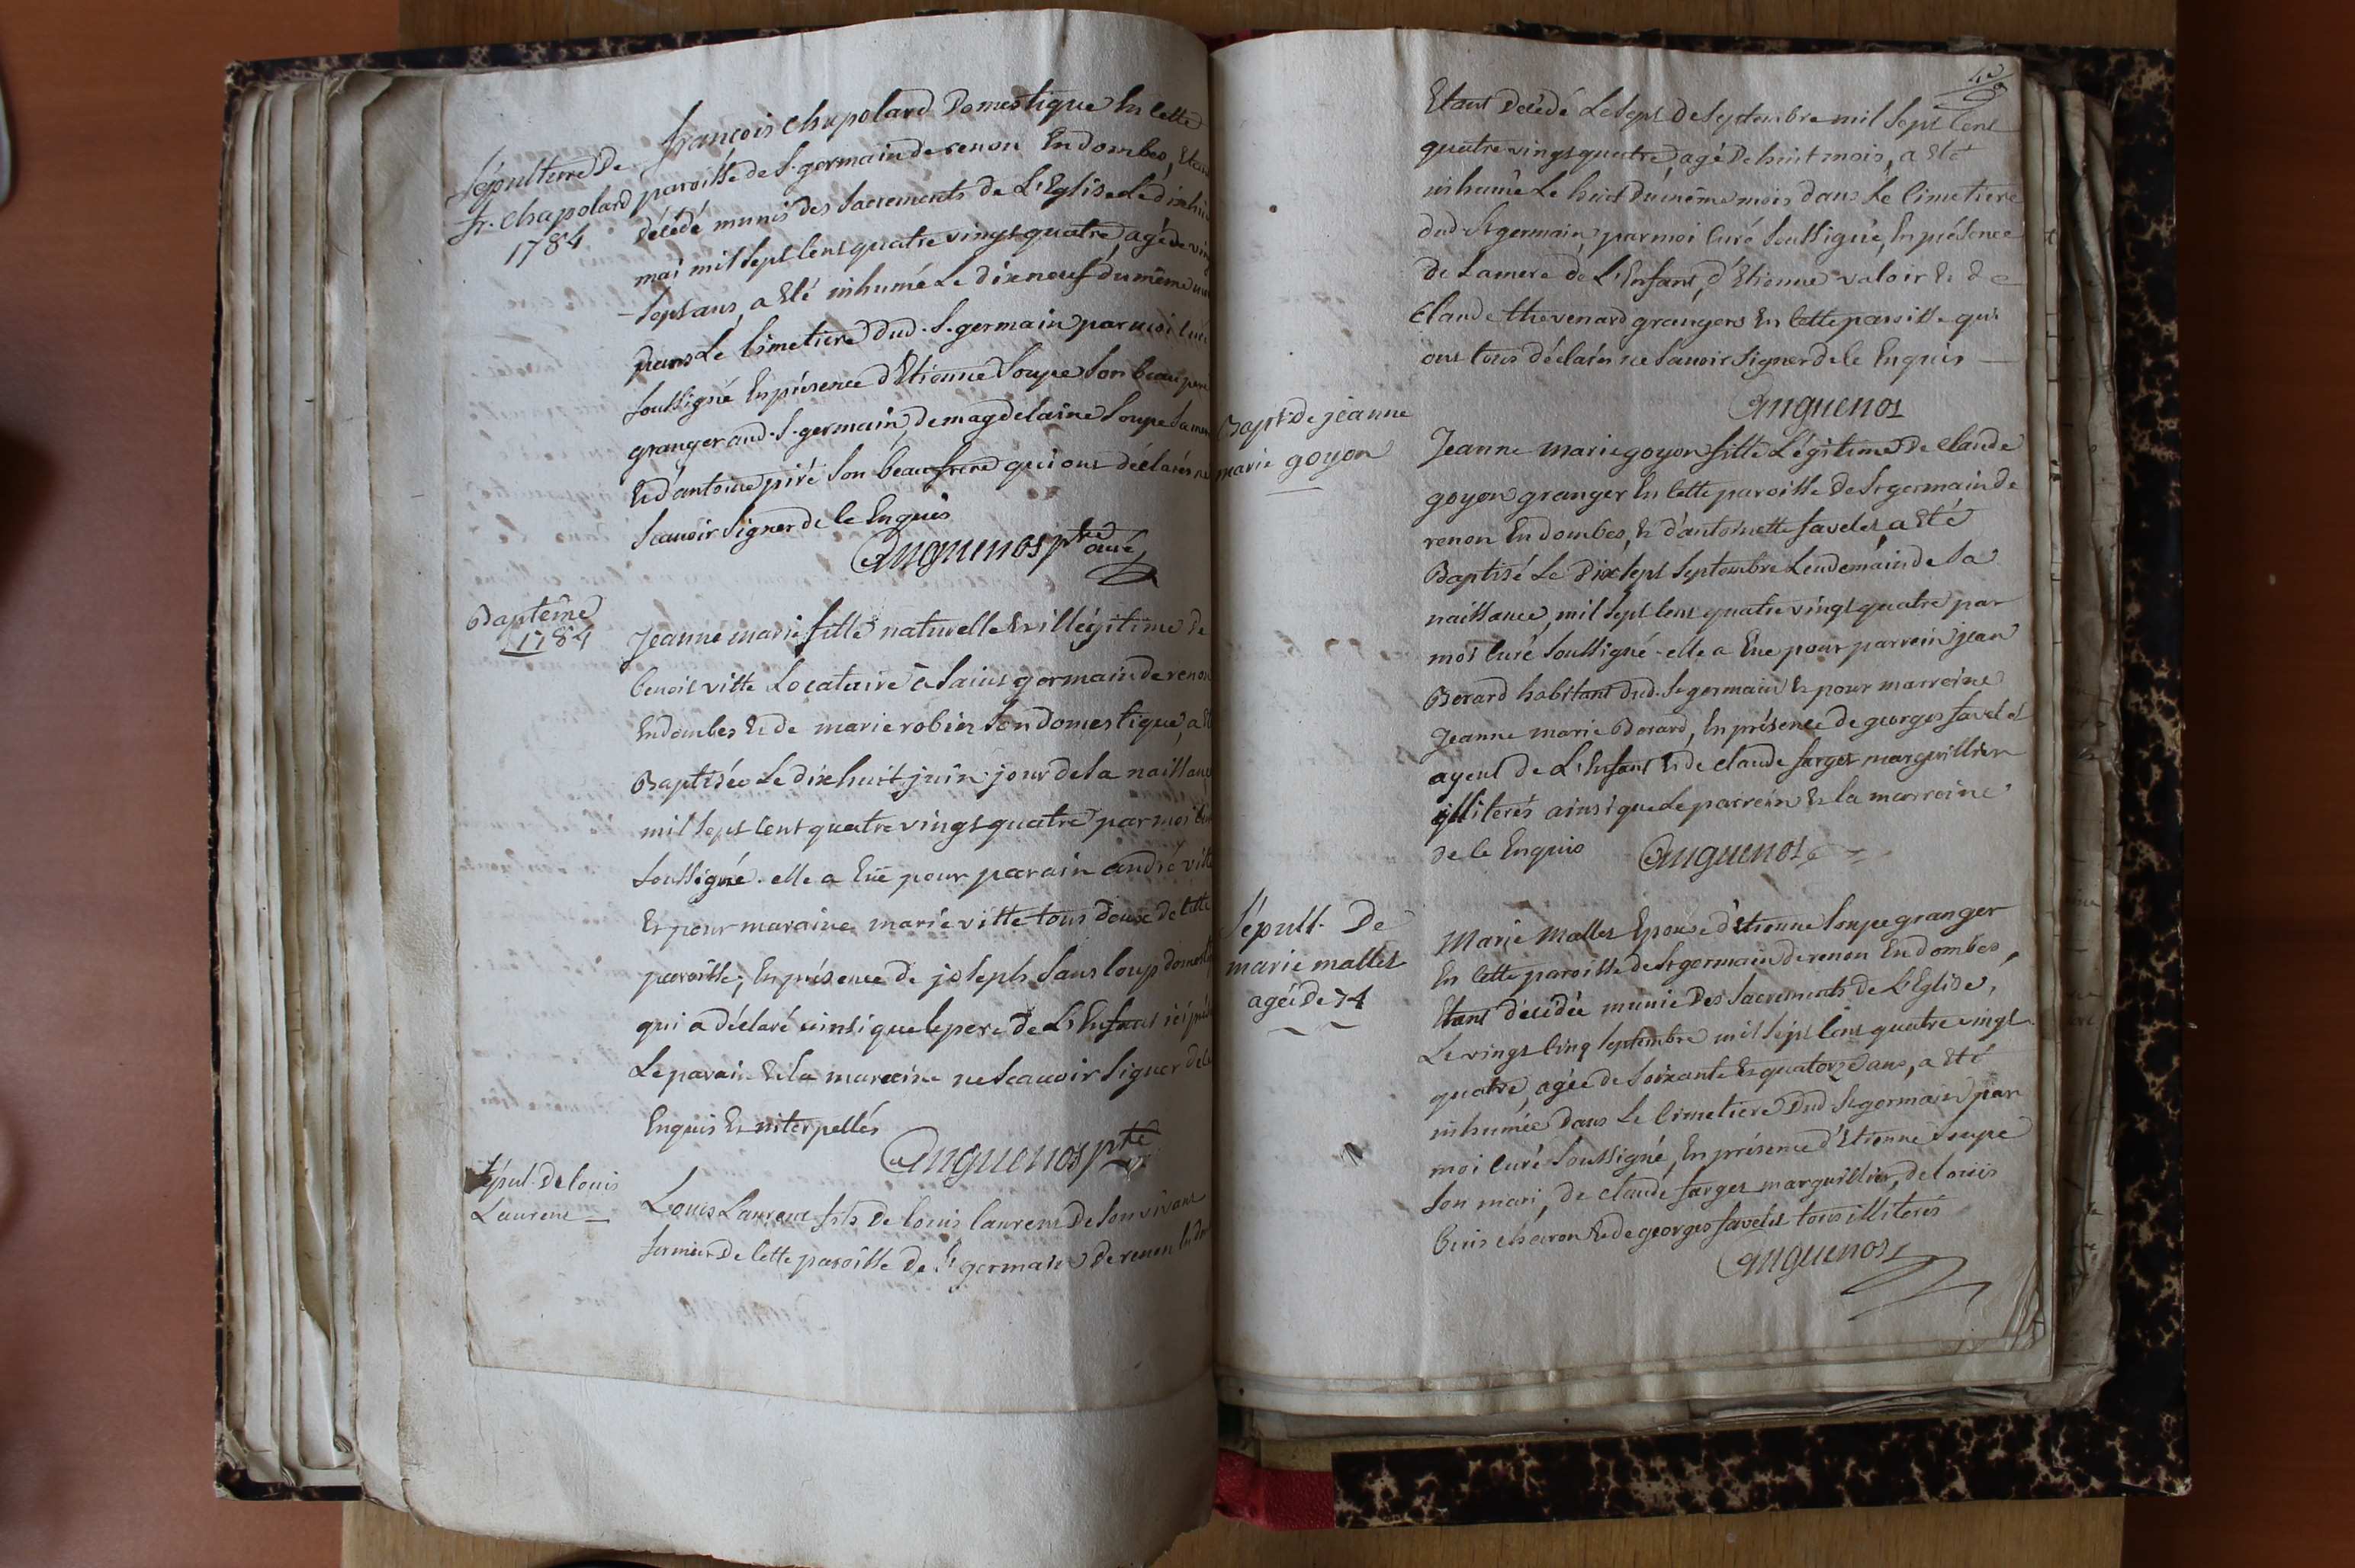 Sépulture De
fr. chapolard
1784
françois chapolard Domestique En cette
paroisse de S. germain de renon En dombes, Etant
décédé munis des Sacrements de L'Eglise Le dixhuit
mai mil Sept Cent quatre vingt quatre, agé de vingt
Sept ans, a Eté inhumé Le dix neuf du même
dans Le Cimetiere dud. S. germain par moi curé
Soussigné En présence d'Etienne Soupe Son beau pere
granger aud. S. germain, de magdelaine Soupe Sa
Et d'antoine piré Son beau frere qui ont déclarés ne
Scavoir Signer de ce Enquis
Anguenos ptre curé
Baptême
1784
Jeanne marie fille naturelle Et illégitime de
benoit vitte Locataire à Saint germain de renon
En dombes Et de marie robin Son Domestique, a Eté
Baptisée Le dix huit juin jour de la naissance
mil Sept Cent quatre vingt quatre par moi Curé
Soussigné. elle a Eüe pour parain andré vitte
Et pour maraine marie vitte tous deux de cette
paroisse, En présence de joseph Sans loup
qui a déclaré ainsi que le pere de L'Enfant ici
Le parain Et la maraine ne Scavoir Signer de ce
Enquis Et interpellés
Anguenos ptre
Sépul. De louis
Laurent
Louis Laurent fils de louis laurent De Son vivant
fermier De Cette paroisse de St germain De renon
Etant Décédé Le Sept de Septembre mil Sept Cent
quatre vingt quatre, agé De huit mois, a Eté
inhumé Le huit du même mois dans Le Cimetiere
dud St germain, par moi Curé Soussigné, En présence
de La mere de L'Enfant, d'Etienne valoir Et de
Claude thevenard grangers En Cette paroisse qui
ont tous déclarés ne Savoir Signer de Ce Enquis
Anguenos
Bapt. De jeanne
marie goyon
Jeanne marie goyon fille Légitime De Claude
goyon granger En Cette paroisse De St germain de
renon En dombes, Et d'antoinette favelet, a Eté
Baptisé Le Dix Sept Septembre Lendemain de Sa
naissance, mil Sept Cent quatre vingt quatre par
moi Curé Soussigné. elle a Eüe pour parrein jean
Berard habitant dud. St germain Et pour marreine
Jeanne marie Berard, En présence De georges favelet
ayeul de L'Enfant Et de Claude farget marguillier
illiterés ainsi que Le parrein Et la marreine
de Ce Enquis
Anguenos
Sépult. De
marie mallet
agée De 74
Marie Mallet Epouse d'Etienne Soupe granger
En Cette paroisse de St germain de renon En dombes,
Etant décédée munie Des Sacrements de L'Eglise,
Le vingt Cinq Septembre mil Sept Cent quatre vingt
quatre, agée de Soixante Et quatorze ans, a Eté
inhumée Dans Le Cimetiere Dud St germain par
moi Curé Soussigné, En présence d'Etienne Soupe
Son mari, de Claude farget marguillier, de louis
charon Et de georges favelet tous illiterés
Anguenos